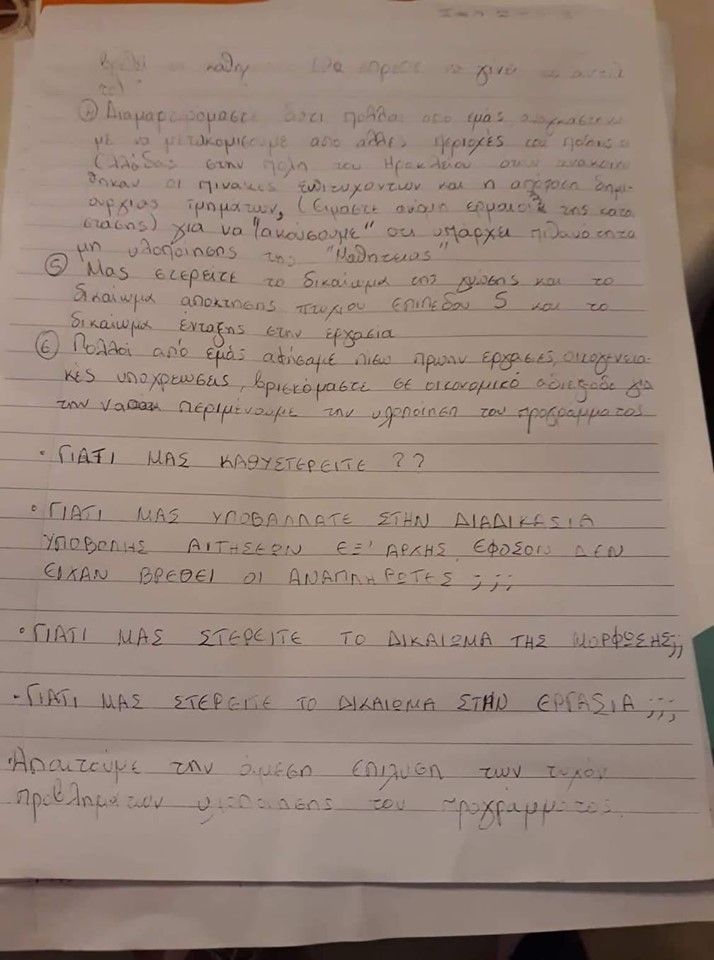 ④ Διαμαρτυρόμαστε διότι πολλοί από εμάς αναγκαστήκα
με να μετακομίσουμε από άλλες περιοχές της
Ελλάδας στην πόλη του Ηρακλείου όταν ανακοινώ
θηκαν οι πίνακες επιτυχόντων και η απόφαση δημι
ουργίας τμημάτων, (είμαστε της κατά
στασης) για να "ακούσουμε" οτι υπάρχει πιθανότητα
μη υλοποίησης της "Μαθητείας"
⑤ Μας στερείτε το δικαίωμα της γνώσης και το
δικαίωμα απόκτησης πτυχίου επιπέδου 5 και το
δικαίωμα ένταξης στην εργασία
⑥ Πολλοί από εμάς αφήσαμε πίσω πρώην εργασίες, οικογενεια
κές υποχρεώσεις, βρισκόμαστε σε οικονομικό αδιέξοδο για
την να περιμένουμε την υλοποίηση του προγράμματος
• ΓΙΑΤΙ ΜΑΣ ΚΑΘΥΣΤΕΡΕΙΤΕ ??
• ΓΙΑΤΙ ΜΑΣ ΥΠΟΒΑΛΛΑΤΕ ΣΤΗΝ ΔΙΑΔΙΚΑΣΙΑ
ΥΠΟΒΟΛΗΣ ΑΙΤΗΣΕΩΝ ΕΞ' ΑΡΧΗΣ ΕΦΟΣΟΝ ΔΕΝ
ΕΙΧΑΝ ΒΡΕΘΕΙ ΟΙ ΑΝΑΠΛΗΡΩΤΕΣ ;;;
• ΓΙΑΤΙ ΜΑΣ ΣΤΕΡΕΙΤΕ ΤΟ ΔΙΚΑΙΩΜΑ ΤΗΣ ΜΟΡΦΩΣΗΣ;;
• ΓΙΑΤΙ ΜΑΣ ΣΤΕΡΕΙΤΕ ΤΟ ΔΙΚΑΙΩΜΑ ΣΤΗΝ ΕΡΓΑΣΙΑ ;;;
• Απαιτούμε την άμεση επίλυση των τυχόν
προβλημάτων υλοποίησης του προγράμματος.